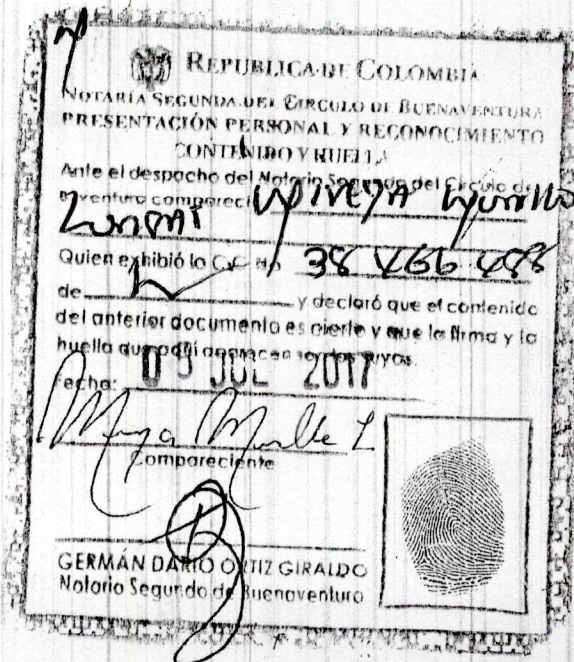 REPUBLICA DE COLOMBIA
NOTARÍA SEGUNDA DEL CIRCULO DE BUENAVENTURA
PRESENTACIÓN PERSONAL Y RECONOCIMIENTO
CONTENIDO Y HUELLA
Ante el despacho del Notario Segundo del Circulo de
Buenaventura compareció
Quien exhibió la C.C. No 38 466 488
de y declaró que el contenido
del anterior documento es cierto y que la firma y la
huella que aquí aparecen son las suyas.
Fecha: JUL 2017
Compareciente
GERMÁN DARÍO ORTIZ GIRALDO
Notario Segundo de Buenaventura